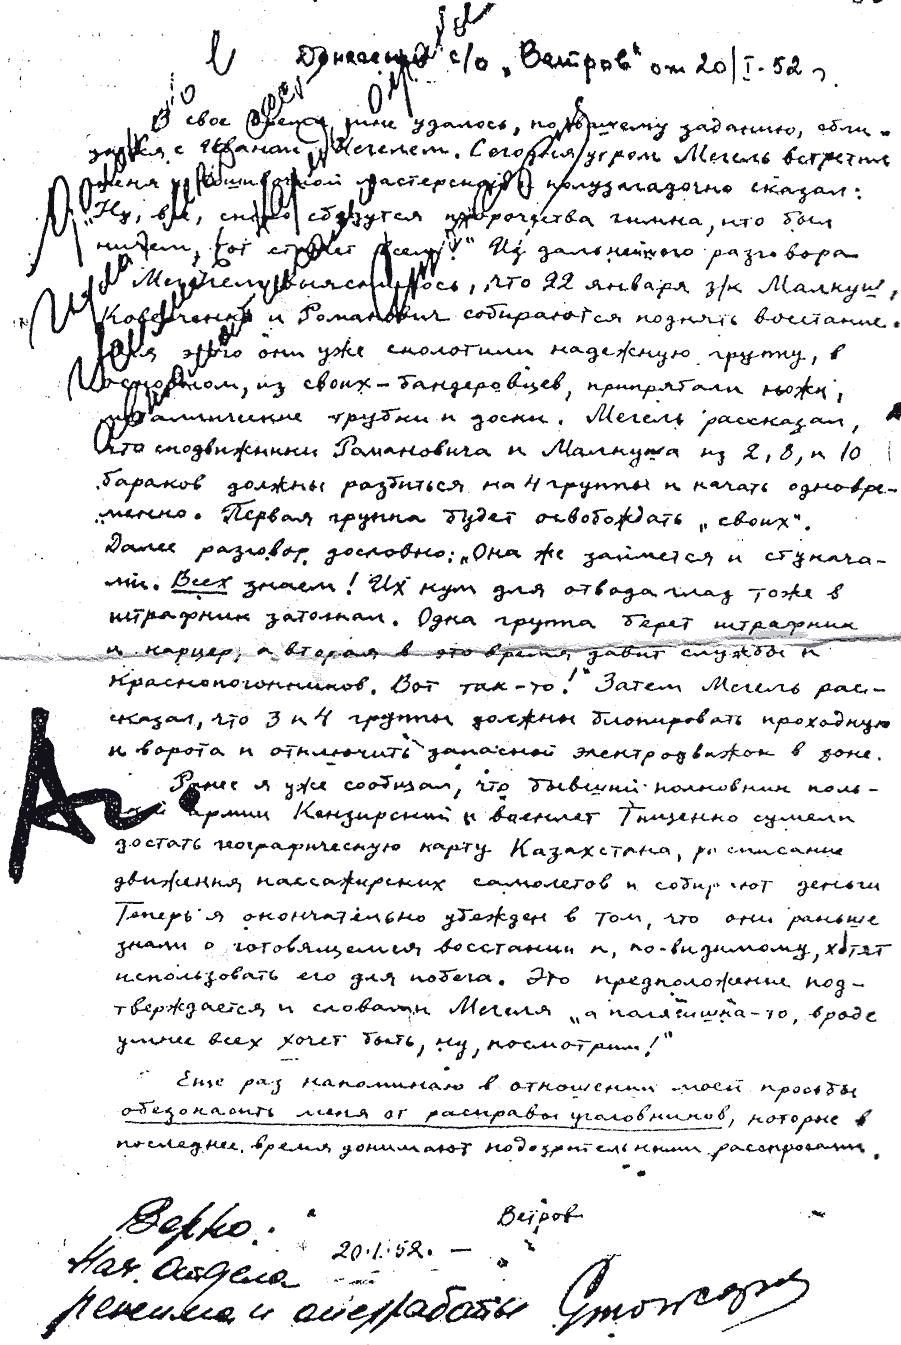 Донесение с/о „Ветров" от 20/I-52 г.
В свое время мне удалось, по Вашему заданию, сбли-
зиться с Иваном Мегелем. Сегодня утром Мегель встретил
меня в пошивочной мастерской и полузагадочно сказал:
"Ну, все, скоро сбудутся пророчества гимна, кто был
ничем, тот станет всем!" Из дальнейшего разговора
с Мегелем выяснилось, что 22 января з/к Малкуш,
Коверченко и Романович собираются поднять восстание.
Для этого они уже сколотили надежную группу, в
основном, из своих-бандеровцев, припрятали ножи,
металические трубки и доски. Мегель рассказал,
что сподвижники Романовича и Малкуша из 2, 8, и 10
бараков должны разбиться на 4 группы и начать одновре-
менно. Первая группа будет освобождать „своих".
Далее разговор дословно: „Она же займется и стукача-
ми. Всех знаем! Их кум для отвода глаз тоже в
штрафник затолкал. Одна группа берет штрафник
и карцер, а вторая в это время давит службы и
краснопогонников. Вот так-то!" Затем Мегель рас-
сказал, что 3 и 4 группы должны блокировать проходную
и ворота и отключить запасной электродвижок в зоне.
Ранее я уже сообщал, что бывший полковник поль-
ской армии Кензирский и военлет Тищенко сумели
достать географическую карту Казахстана, расписание
движения пассажирских самолетов и собирают деньги
Теперь я окончательно убежден в том, что они раньше
знали о готовящемся восстании и, по-видимому, хотят
использовать его для побега. Это предположение под-
тверждается и словами Мегеля „а полячишка-то, вроде
умнее всех хочет быть, ну, посмотрим!"
Еще раз напоминаю в отношении моей просьбы
обезопасить меня от расправы уголовников, которые в
последнее время донимают подозрительными расспросами.
Ветров
20.1.52. —
Верно:
Нач. отдела
режима и оперработы Стожаров